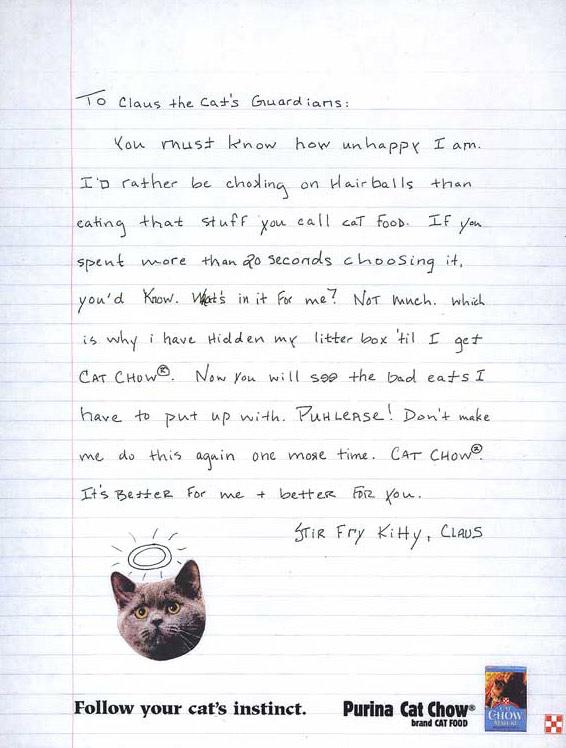 To Claus the Cat's Guardians:
You must know how unhappy I am.
I'D rather be choking on Hairballs than
eating that stuff you call caT Food. If you
spent more than 20 seconds choosing it,
you'd Know. What's in it For me? Not much. which
is why i have Hidden my litter box 'til I get
CAT CHOW®. Now you will see the bad eats I
have to put up with. PUHLEASE! Don't make
me do this again one more time. CAT CHOW®.
It's BetteR For me + better FOR you.
Stir Fry Kitty, Claus
Follow your cat's instinct.
Purina Cat Chow®
brand CAT FOOD
CAT
CHOW